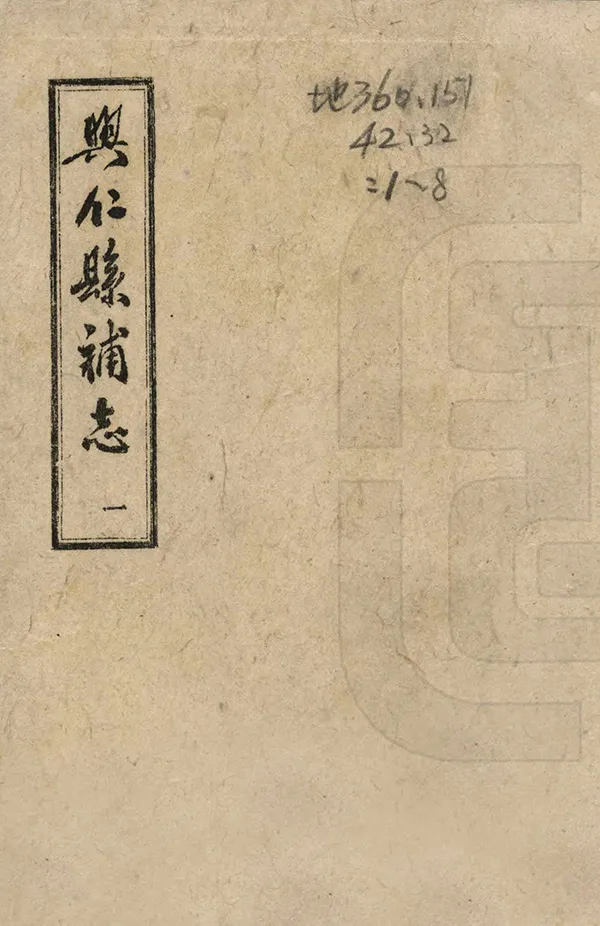 興仁縣補志
一
地360.151
42.32
:1~8